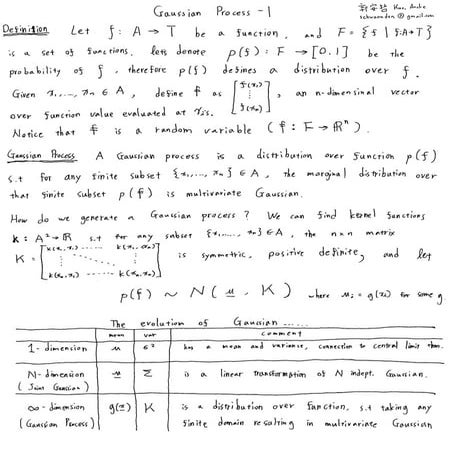 Gaussian Process - 1
Kuo, Anche
schwannden @ gmail.com
Definition Let f : A → T be a function, and F = {f | f:A→T}
is a set of functions. lets denote p(f) : F → [0,1] be the
probability of f, therefore p(f) defines a distribution over f.
Given x₁,...,xₙ ∈ A, define f as [f(x₁) ⋮ f(xₙ)], an n-dimensinal vector
over function value evaluated at xᵢs.
Notice that f is a random variable (f: F → ℝⁿ).
Gaussian Process A Gaussian process is a distribution over function p(f)
s.t for any finite subset {x₁,...,xₙ} ∈ A, the marginal distribution over
that finite subset p(f) is multivariate Gaussian.
How do we generate a Gaussian process? We can find kernel functions
k: A² → ℝ s.t for any subset {x₁,...,xₙ} ∈ A, the n×n matrix
K = [k(x₁,x₁) ...... k(x₁,xₙ) ⋮ ⋮ k(xₙ,x₁) ...... k(xₙ,xₙ)] is symmetric, positive definite, and let
p(f) ~ N(μ, K) where μᵢ = g(xᵢ) for some g.
The evolution of Gaussian ......
mean var comment
1-dimension μ σ² has a mean and variance, connection to central limit thm.
N-dimension (Joint Gaussian) μ Σ is a linear transformation of N indept. Gaussian.
∞-dimension g(x) K is a distribution over function, s.t taking any
(Gaussian Process) finite domain resulting in multivariate Gaussian